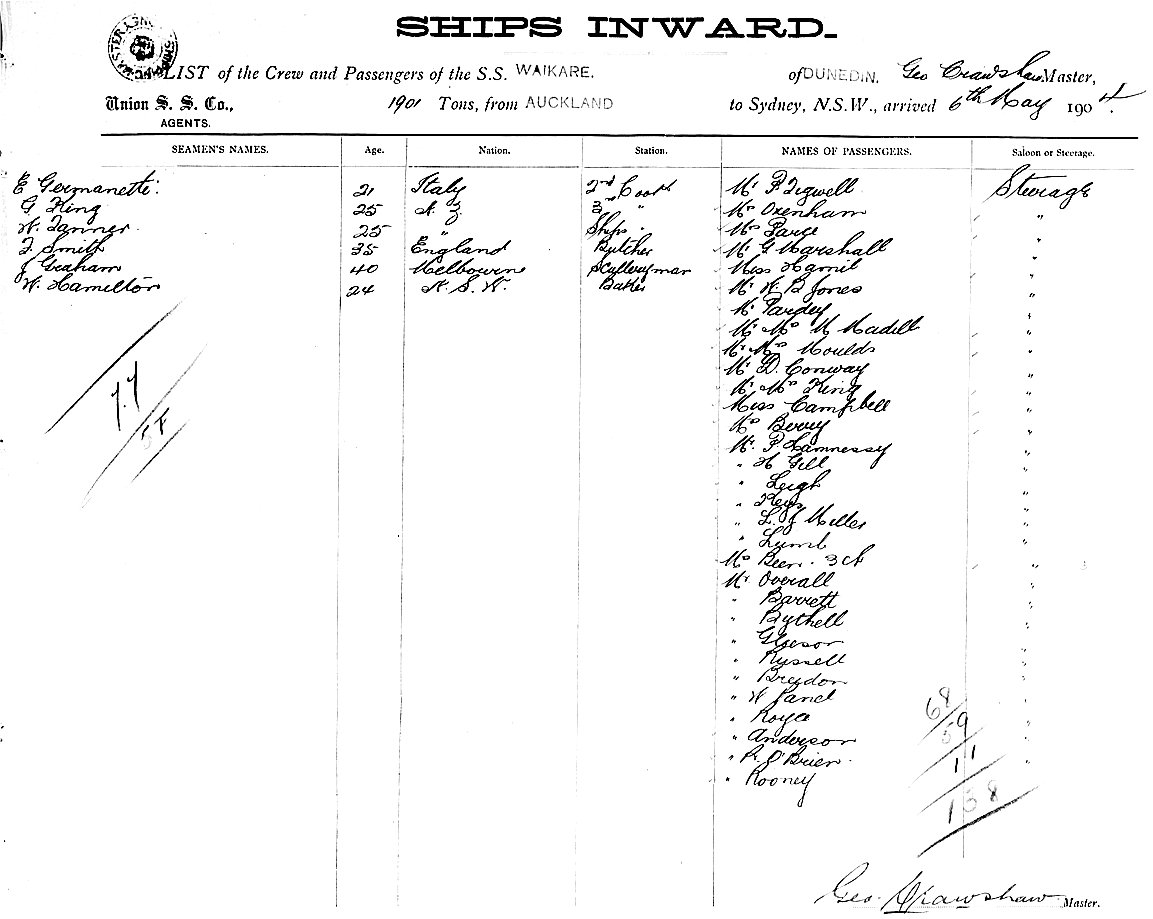 SHIPS INWARD.
LIST of the Crew and Passengers of the S.S. WAIKARE. of DUNEDIN. Geo Crawshaw Master,
Union S. S. Co., 1901 Tons, from AUCKLAND to Sydney, N.S.W., arrived 6th May 1904.
AGENTS.
SEAMEN'S NAMES. Age. Nation. Station. NAMES OF PASSENGERS. Saloon or Steerage.
E Germanette 21 Italy 2nd Cook Mr P Tigwell Steerage
G King 25 N. Z 3 " Mrs Oxenham "
W. Tanner 25 " Ships " Mrs "
Smith 35 England Butcher Mr G Marshall "
J Graham 40 Melbourne Sculleryman Miss Hamil "
W. Hamilton 24 N. S. W. Baker Mr W B Jones "
Mr Pardey "
Mr Mrs M Madell "
Mr Mrs Moulds "
Mr D. Conway "
Mr Mrs King "
Miss Campbell "
Mrs Berry "
Mr. P. Hamnessy "
" H Gill "
" Leigh "
" Keys "
" L. J Miller "
" Lumb "
Mrs Been. 3 ch "
Mr Overall "
" Barrett "
" Bythell "
" Gleeson "
" Russell "
" Breydon "
" W Janel "
" Royce "
" Anderson "
" P. O'Brien "
" Rooney
77
58
68
59
11
138
Geo. Crawshaw Master.